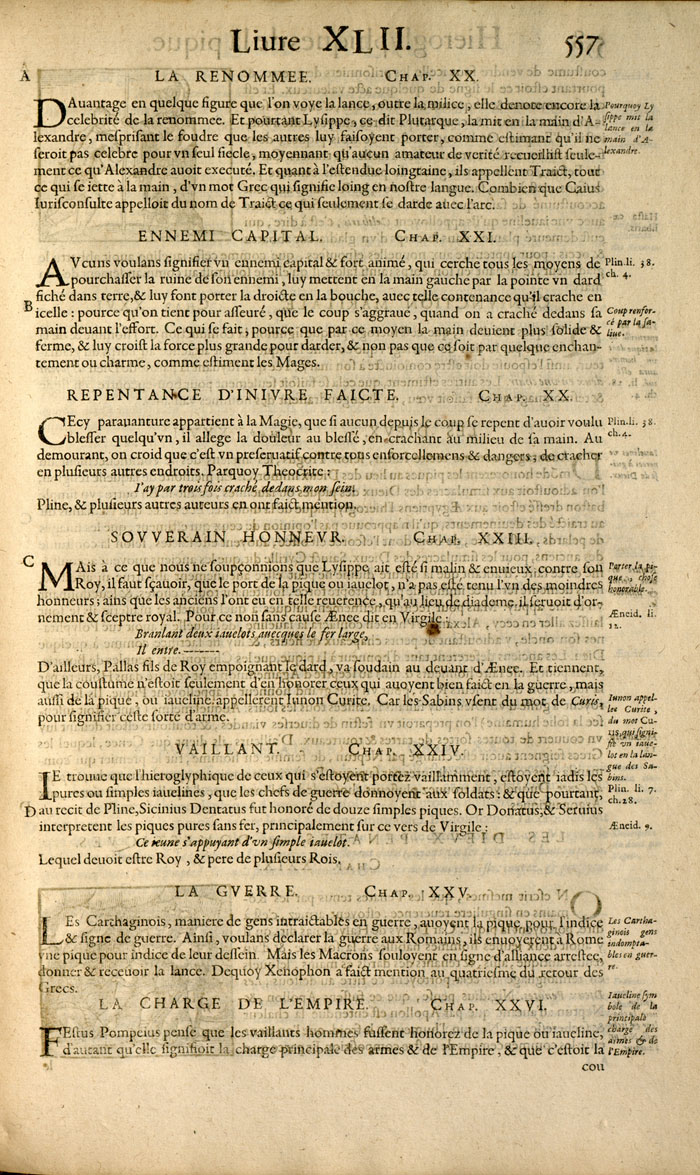 Liure XLII. 557
A LA RENOMMEE. CHAP. XX.
DAuantage en quelque figure que l'on voye la lance, outre la milice, elle denote encore la
celebrité de la renommee. Et pourtant Lysippe, ce dit Plutarque, la mit en la main d'A-
lexandre, mesprisant le foudre que les autres luy faisoyent porter, comme estimant qu'il ne
seroit pas celebre pour vn seul siecle, moyennant qu'aucun amateur de verité recueillist seule-
ment ce qu'Alexandre auoit executé. Et quant à l'estendue loingtaine, ils appellent Traict, tout
ce qui se iette à la main, d'vn mot Grec qui signifie loing en nostre langue. Combien que Caius
Iurisconsulte appelloit du nom de Traict ce qui seulement se darde auec l'arc.
Pourquoy Ly
sippe mit la
lance en la
main d'A-
lexandre.
ENNEMI CAPITAL. CHAP. XXI.
AVcuns voulans signifier vn ennemi capital & fort animé, qui cerche tous les moyens de
pourchasser la ruine de son ennemi, luy mettent en la main gauche par la pointe vn dard
fiché dans terre, & luy font porter la droicte en la bouche, auec telle contenance qu'il crache en
B icelle: pource qu'on tient pour asseuré, que le coup s'aggraue, quand on a craché dedans sa
main deuant l'effort. Ce qui se fait, pource que par ce moyen la main deuient plus solide &
ferme, & luy croist la force plus grande pour darder, & non pas que ce soit par quelque enchan-
tement ou charme, comme estiment les Mages.
Plin. li. 38.
ch. 4.
Coup renfor-
cé par la sa-
liue.
REPENTANCE D'INIVRE FAICTE. CHAP. XX.
CEcy parauanture appartient à la Magie, que si aucun depuis le coup se repent d'auoir voulu
blesser quelqu'vn, il allege la douleur au blessé, en crachant au milieu de sa main. Au
demourant, on croid que c'est vn preseruatif contre tous enforcellemens & dangers, de cracher
en plusieurs autres endroits. Parquoy Theocrite:
I'ay par trois fois craché dedans mon sein.
Pline, & plusieurs autres auteurs en ont faict mention.
Plin. li. 38.
ch. 4.
SOVVERAIN HONNEVR. CHAP. XXIII.
C MAis à ce que nous ne soupçonnions que Lysippe ait esté si malin & enuieux contre son
Roy, il faut sçauoir, que le port de la pique ou iauelot, n'a pas esté tenu l'vn des moindres
honneurs; ains que les anciens l'ont eu en telle reuerence, qu'au lieu de diademe, il seruoit d'or-
nement & sceptre royal. Pour ce non sans cause Ænee dit en Virgile:
Branlant deux iauelots auecques le fer large,
Il entre.
D'ailleurs, Pallas fils de Roy empoignant le dard, va soudain au deuant d'Ænee. Et tiennent,
que la coustume n'estoit seulement d'en honorer ceux qui auoyent bien faict en la guerre, mais
aussi de la pique, ou iaueline appellerent Iunon Curite. Car les Sabins vsent du mot de Curis,
pour signifier ceste sorte d'arme.
Porter la pi-
que, chose
honorable.
Æneid. li.
12.
Iunon appel-
lee Curite,
du mot Cu-
ris, qui signi-
fie vn iaue-
lot en la lan-
gue des Sa-
bins.
VAILLANT. CHAP. XXIV.
IE trouue que l'hieroglyphique de ceux qui s'estoyent portez vaillamment, estoyent iadis les
pures ou simples iauelines, que les chefs de guerre donnoyent aux soldats: & que pourtant,
D au recit de Pline, Sicinius Dentatus fut honoré de douze simples piques. Or Donatus, & Seruius
interpretent les piques pures sans fer, principalement sur ce vers de Virgile:
Ce ieune s'appuyant d'vn simple iauelot.
Lequel deuoit estre Roy, & pere de plusieurs Rois.
Plin. li. 7.
ch. 28.
Æneid. 9.
LA GVERRE. CHAP. XXV.
LEs Carthaginois, maniere de gens intraictables en guerre, auoyent la pique pour l'indice
& signe de guerre. Ainsi, voulans declarer la guerre aux Romains, ils enuoyerent à Rome
vne pique pour indice de leur dessein. Mais les Macrons souloyent en signe d'alliance arrestee,
donner & receuoir la lance. Dequoy Xenophon a faict mention au quatriesme du retour des
Grecs.
Les Cartha-
ginois gens
indompta-
bles en guer-
re.
LA CHARGE DE L'EMPIRE. CHAP. XXVI.
FEstus Pompeius pense que les vaillants hommes fussent honorez de la pique ou iaueline,
d'autant qu'elle signifioit la charge principale des armes & de l'Empire, & que c'estoit la
Iaueline sym
bole de la
principale
charge des
armes & de
l'Empire.
cou